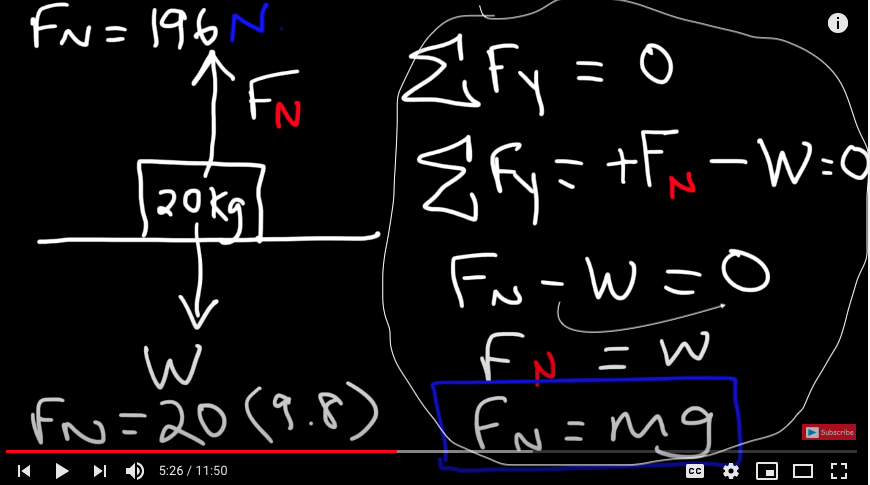 F_N = 196 N.
F_N
20 kg
W
F_N = 20 (9.8)
∑ F_y = 0
∑ F_y = +F_N - W = 0
F_N - W = 0
F_N = W
F_N = mg
i
Subscribe
5:26 / 11:50
CC